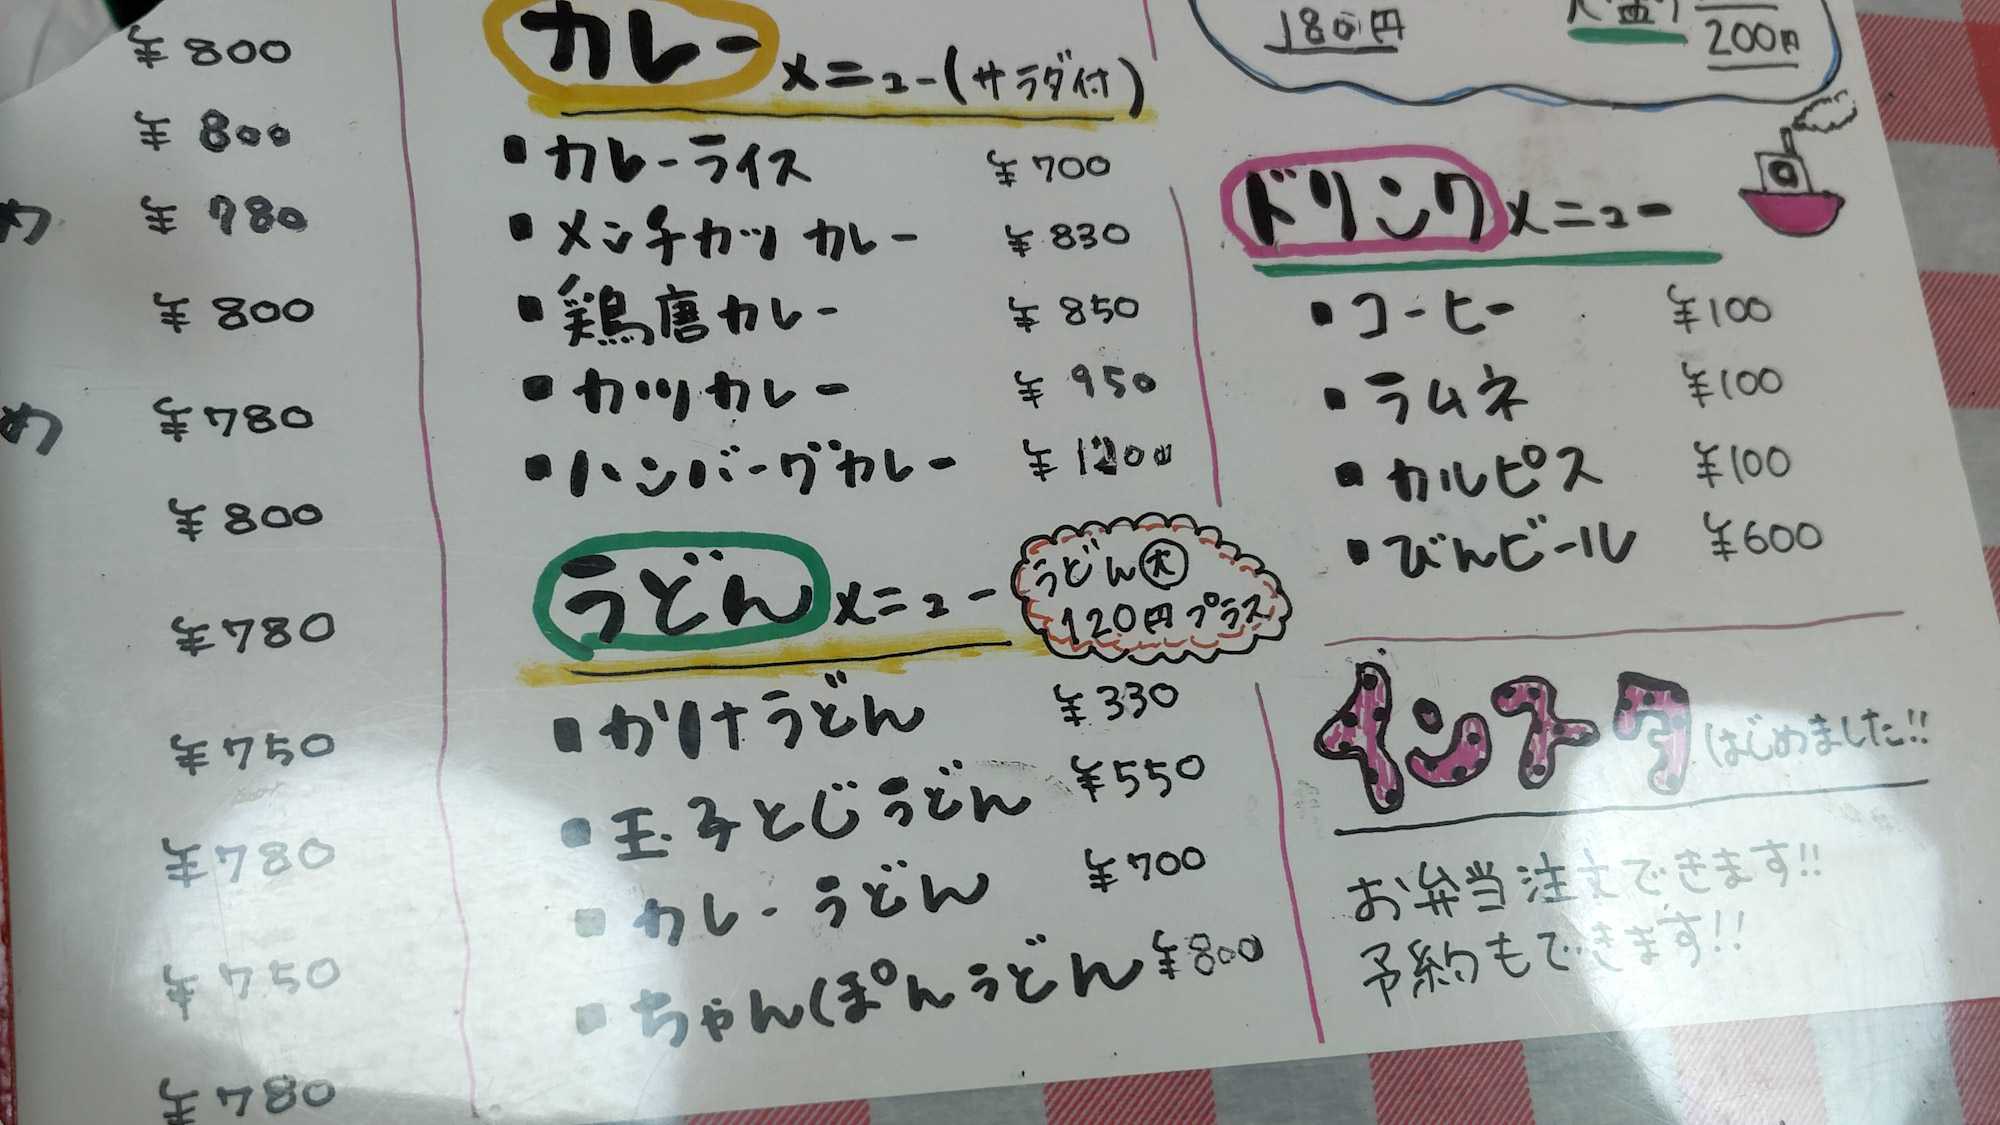 ¥800
¥800
め ¥780
¥800
め ¥780
¥800
¥780
¥750
¥780
¥750
¥780
カレーメニュー(サラダ付)
・カレーライス ¥700
・メンチカツカレー ¥830
・鶏唐カレー ¥850
・カツカレー ¥950
・ハンバーグカレー ¥1200
うどんメニュー
うどん大
120円プラス
・かけうどん ¥330
・玉子とじうどん ¥550
・カレーうどん ¥700
・ちゃんぽんうどん ¥800
180円
大盛り 200円
ドリンクメニュー
・コーヒー ¥100
・ラムネ ¥100
・カルピス ¥100
・びんビール ¥600
インスタはじめました!!
お弁当注文できます!!
予約もできます!!